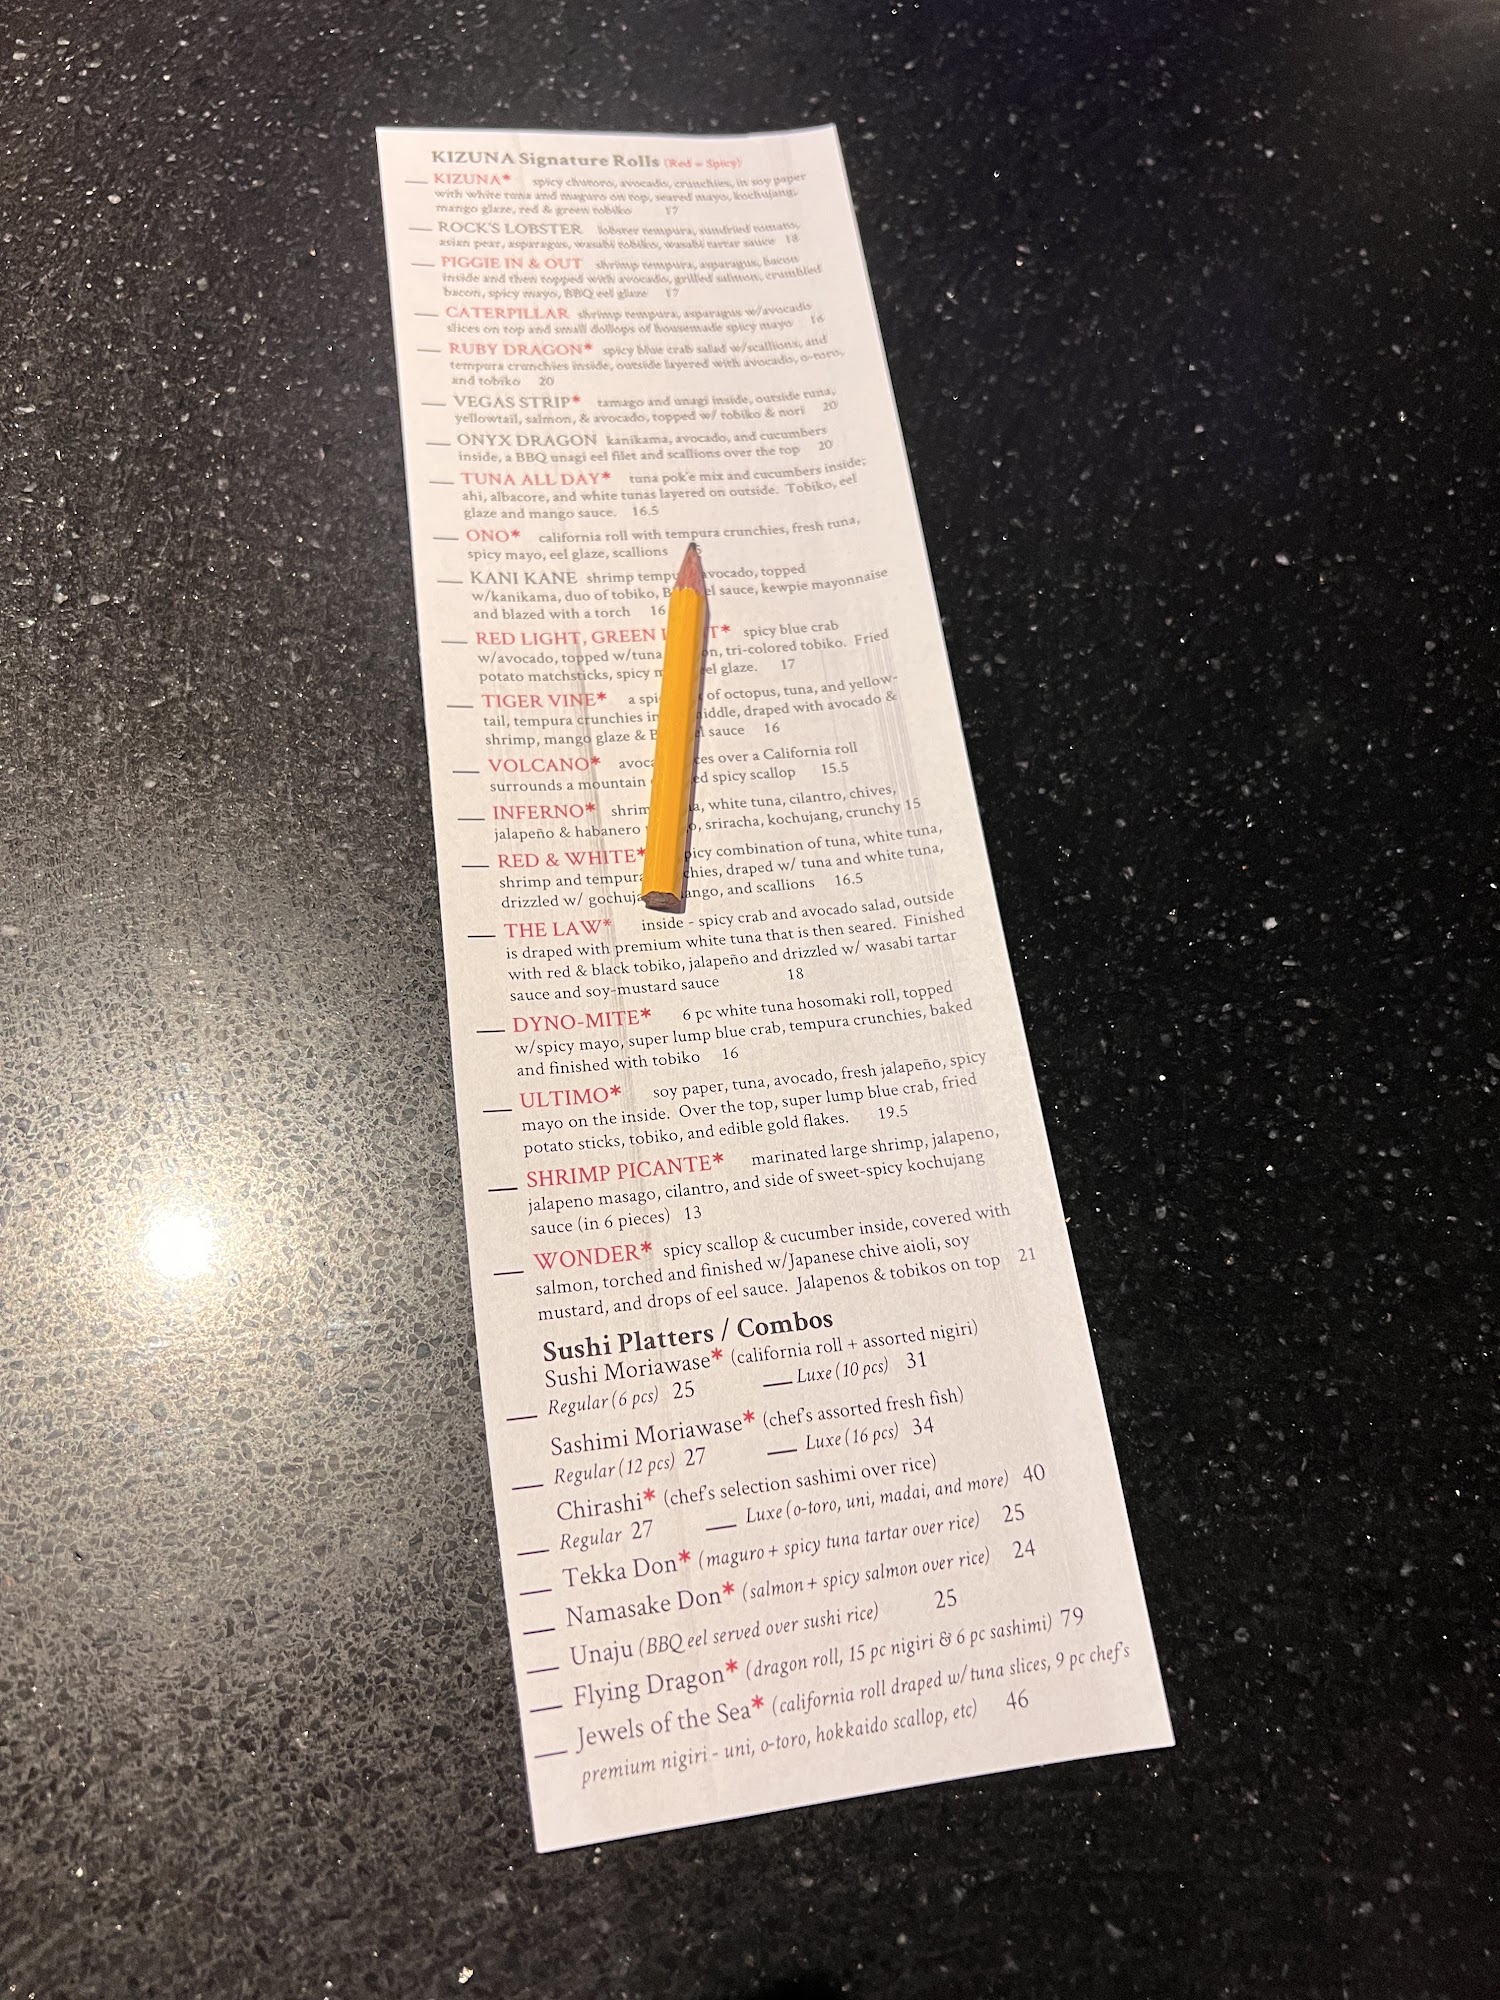 KIZUNA Signature Rolls (Red = Spicy)
KIZUNA* spicy chutoro, avocado, crunchies, in soy paper
with white tuna and maguro on top, seared mayo, kochujang,
mango glaze, red & green tobiko 17
ROCK'S LOBSTER lobster tempura, sundried tomato,
asian pear, asparagus, wasabi tobiko, wasabi tartar sauce 18
PIGGIE IN & OUT shrimp tempura, asparagus, bacon
inside and then topped with avocado, grilled salmon, crumbled
bacon, spicy mayo, BBQ eel glaze 17
CATERPILLAR shrimp tempura, asparagus w/avocado
slices on top and small dollops of housemade spicy mayo 16
RUBY DRAGON* spicy blue crab salad w/scallions, and
tempura crunchies inside, outside layered with avocado, o-toro,
and tobiko 20
VEGAS STRIP* tamago and unagi inside, outside tuna,
yellowtail, salmon, & avocado, topped w/ tobiko & nori 20
ONYX DRAGON kanikama, avocado, and cucumbers
inside, a BBQ unagi eel filet and scallions over the top 20
TUNA ALL DAY* tuna pok'e mix and cucumbers inside;
ahi, albacore, and white tunas layered on outside. Tobiko, eel
glaze and mango sauce. 16.5
ONO* california roll with tempura crunchies, fresh tuna,
spicy mayo, eel glaze, scallions
KANI KANE shrimp avocado, topped
w/kanikama, duo of tobiko, sauce, kewpie mayonnaise
and blazed with a torch 16
RED LIGHT, GREEN spicy blue crab
w/avocado, topped w/tuna tri-colored tobiko. Fried
potato matchsticks, spicy eel glaze. 17
TIGER VINE* a of octopus, tuna, and yellow-
tail, tempura crunchies in draped with avocado &
shrimp, mango glaze & sauce 16
VOLCANO* over a California roll
surrounds a mountain spicy scallop 15.5
INFERNO* white tuna, cilantro, chives,
jalapeño & habanero sriracha, kochujang, crunchy 15
RED & WHITE* combination of tuna, white tuna,
shrimp and tempura draped w/ tuna and white tuna,
drizzled w/ and scallions 16.5
THE LAW* inside - spicy crab and avocado salad, outside
is draped with premium white tuna that is then seared. Finished
with red & black tobiko, jalapeño and drizzled w/ wasabi tartar
sauce and soy-mustard sauce 18
DYNO-MITE* 6 pc white tuna hosomaki roll, topped
w/spicy mayo, super lump blue crab, tempura crunchies, baked
and finished with tobiko 16
ULTIMO* soy paper, tuna, avocado, fresh jalapeño, spicy
mayo on the inside. Over the top, super lump blue crab, fried
potato sticks, tobiko, and edible gold flakes. 19.5
SHRIMP PICANTE* marinated large shrimp, jalapeno,
jalapeno masago, cilantro, and side of sweet-spicy kochujang
sauce (in 6 pieces) 13
WONDER* spicy scallop & cucumber inside, covered with
salmon, torched and finished w/Japanese chive aioli, soy
mustard, and drops of eel sauce. Jalapenos & tobikos on top 21
Sushi Platters / Combos
Sushi Moriawase* (california roll + assorted nigiri)
Regular (6 pcs) 25 Luxe (10 pcs) 31
Sashimi Moriawase* (chef's assorted fresh fish)
Regular (12 pcs) 27 Luxe (16 pcs) 34
Chirashi* (chef's selection sashimi over rice)
Regular 27 Luxe (o-toro, uni, madai, and more) 40
Tekka Don* (maguro + spicy tuna tartar over rice) 25
Namasake Don* (salmon + spicy salmon over rice) 24
Unaju (BBQ eel served over sushi rice) 25
Flying Dragon* (dragon roll, 15 pc nigiri & 6 pc sashimi) 79
Jewels of the Sea* (california roll draped w/tuna slices, 9 pc chef's
premium nigiri - uni, o-toro, hokkaido scallop, etc) 46